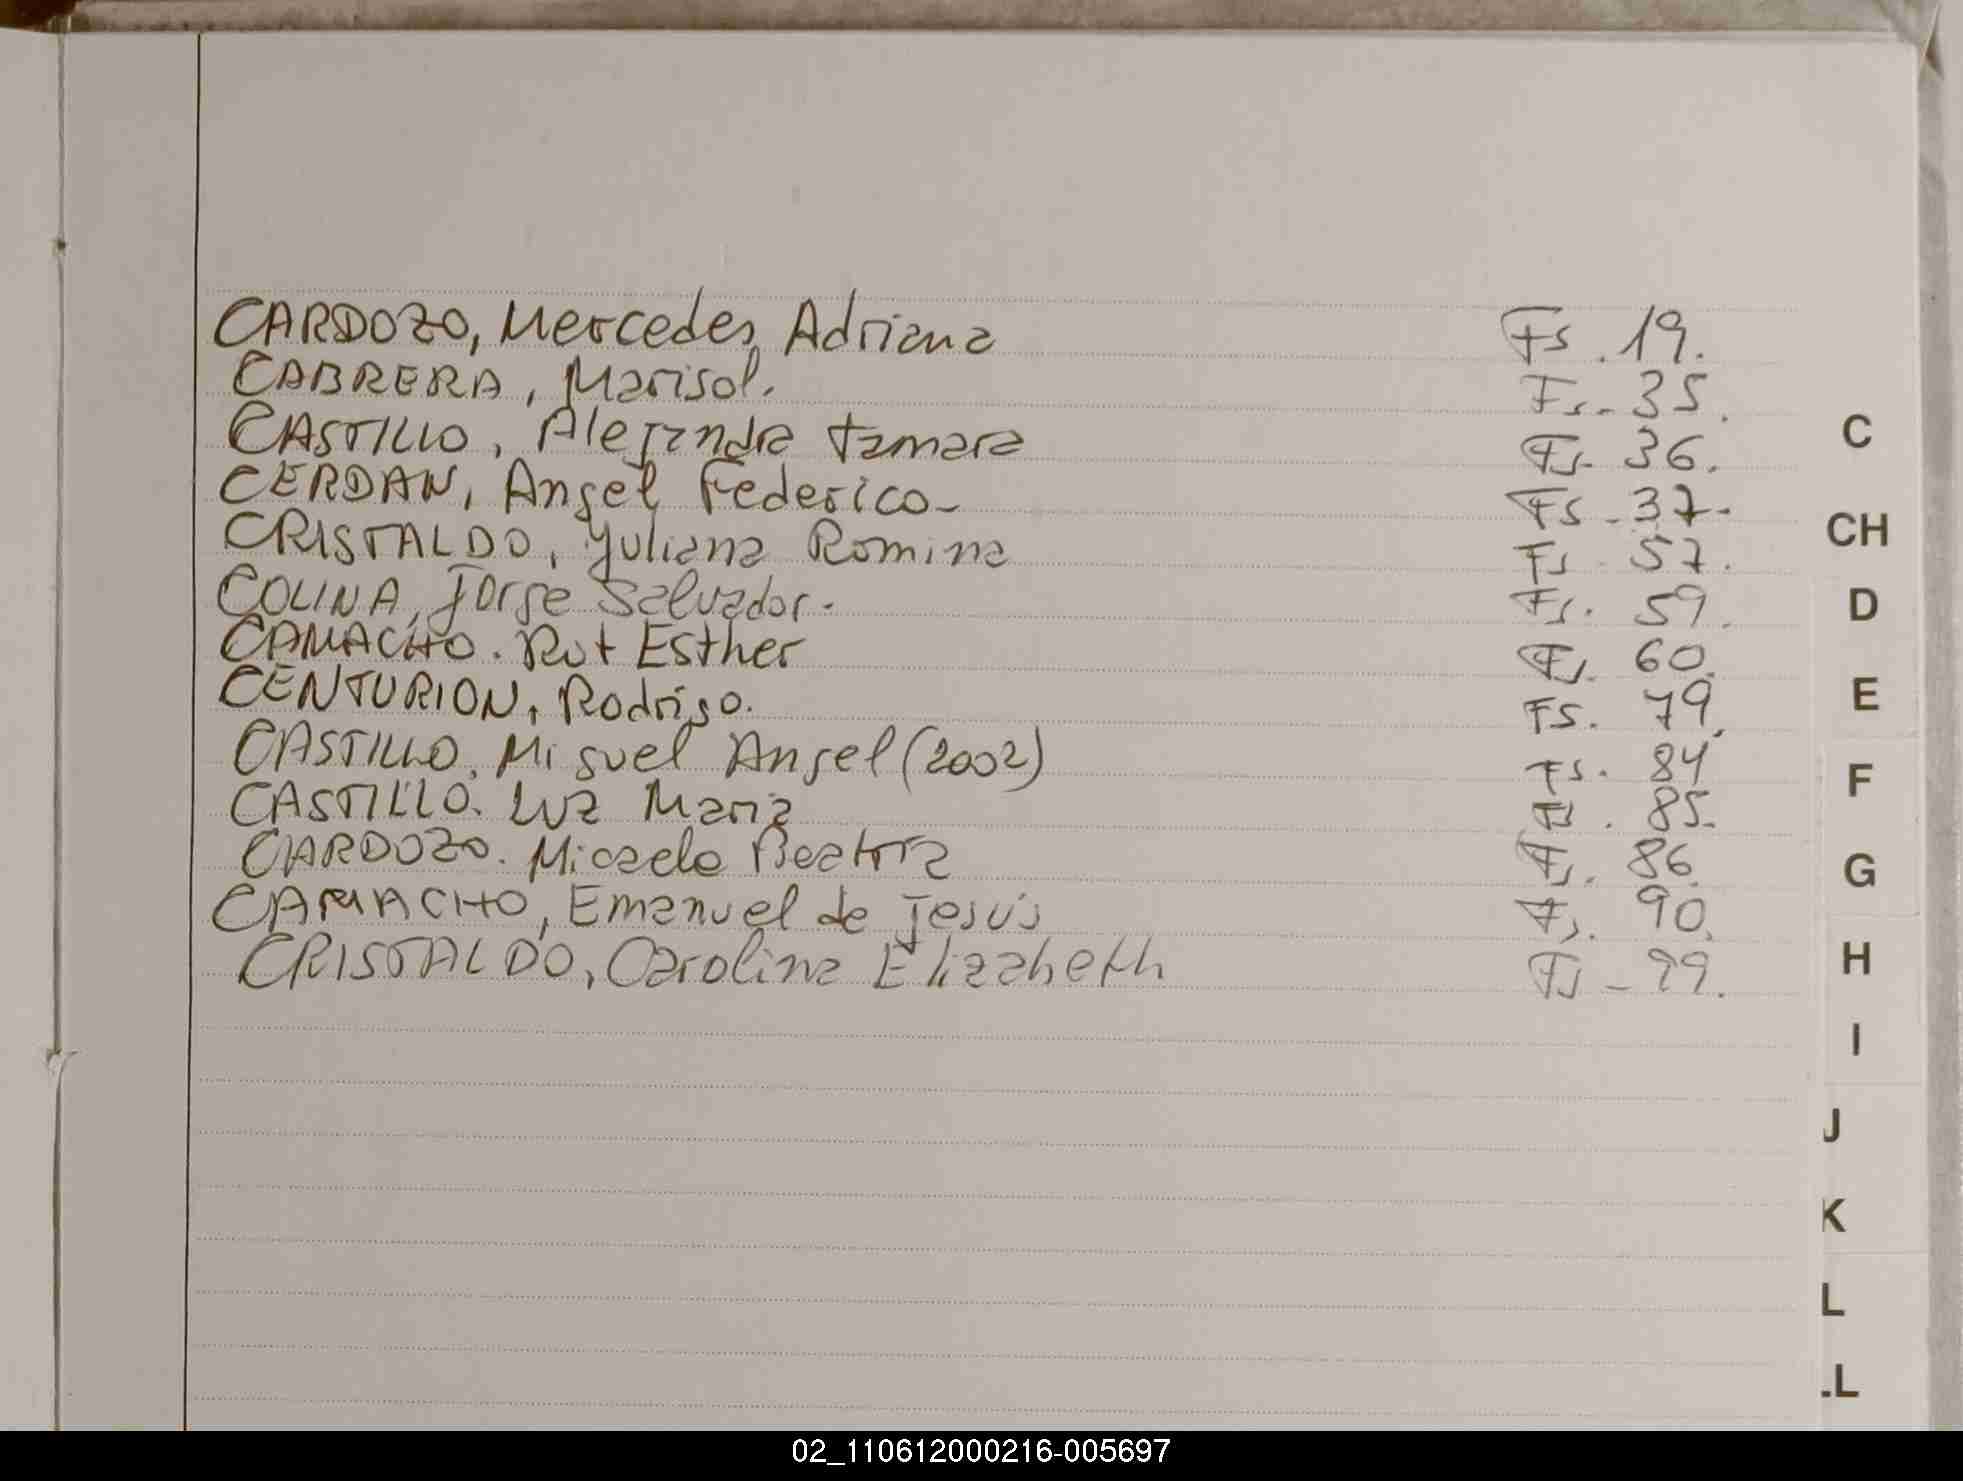 CARDOZO, Mercedes Adriana Fs. 19.
CABRERA, Marisol. Fs. 35.
CASTILLO, Alejandra Tamara Fs. 36.
CERDAN, Angel Federico- Fs - 37-
CRISTALDO, Yuliana Romina Fs. 57.
COLINA, Jorge Salvador. Fs. 59.
CAMACHO. Rut Esther Fs. 60.
CENTURION, Rodrigo. Fs. 79.
CASTILLO. Miguel Angel (2002) Fs. 84
CASTILLO. Luz Maria Fs. 85.
CARDOZO. Micaela Beatriz Fs. 86.
CAMACHO, Emanuel de Jesús Fs. 90.
CRISTALDO, Carolina Elizabeth Fs - 99.
C
CH
D
E
F
G
H
I
J
K
L
LL
02_110612000216-005697